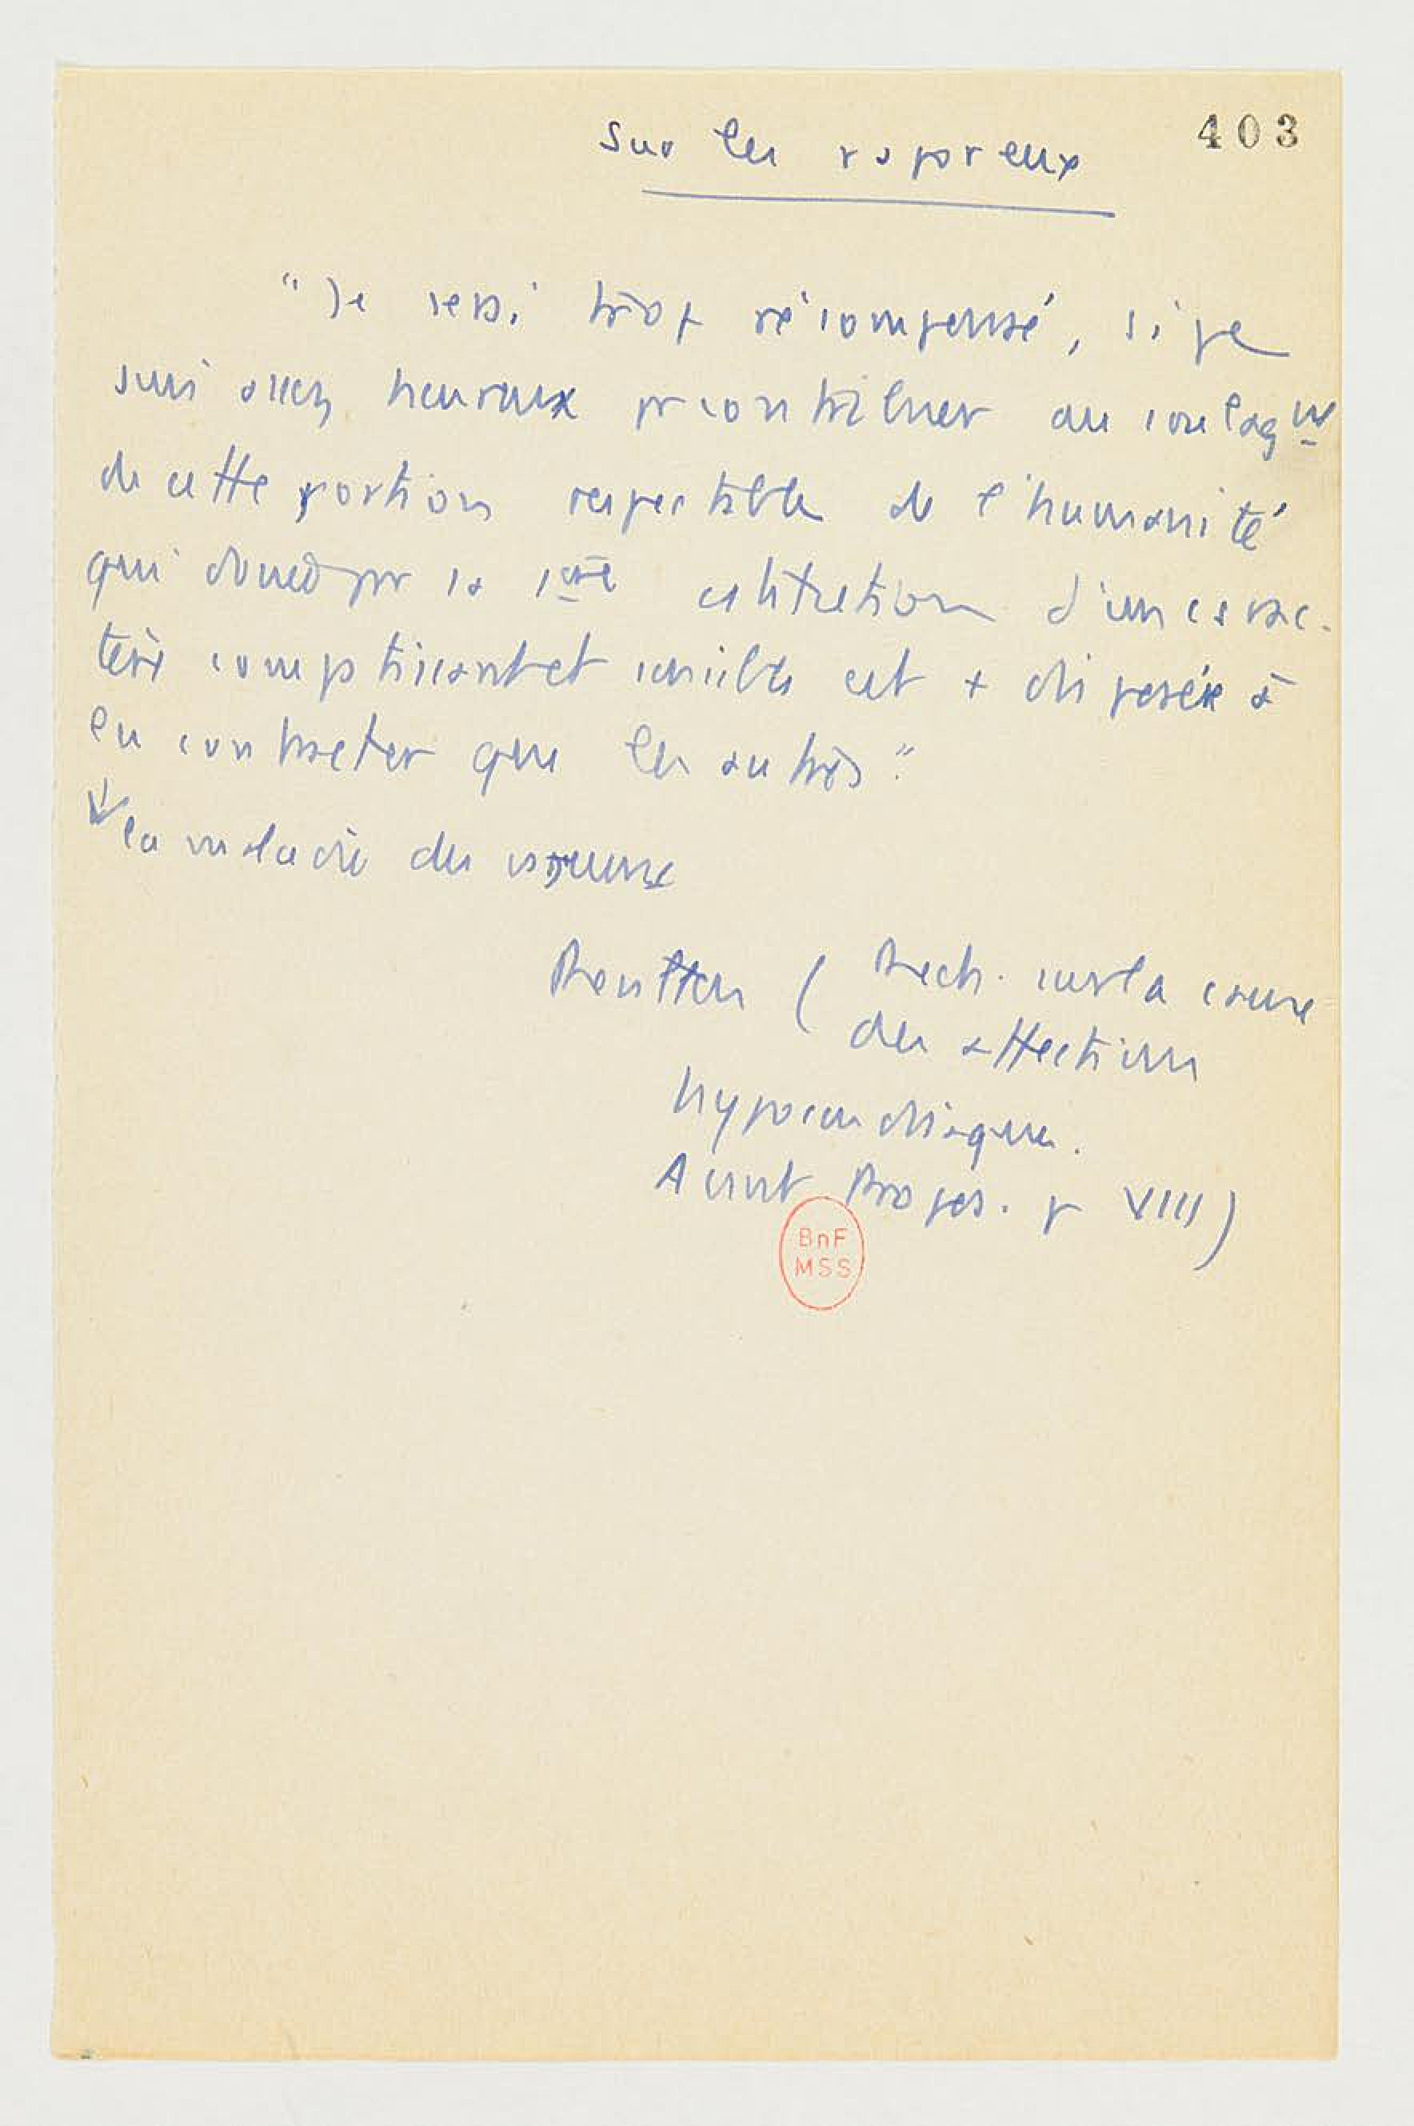 403
Sur les vaporeux
"Je serai trop récompensé, si je
suis assez heureux pr contribuer au soulagnt
de cette portion respectable de l'humanité
qui douée par la
d'un carac-
tère compatissant et sensible est + disposée à
en contracter que les autres."
la maladie des vapeurs
(Rech. sur la cause
des affections
hypocondriaques.
Avant Propos. p VIII)
BnF
MSS